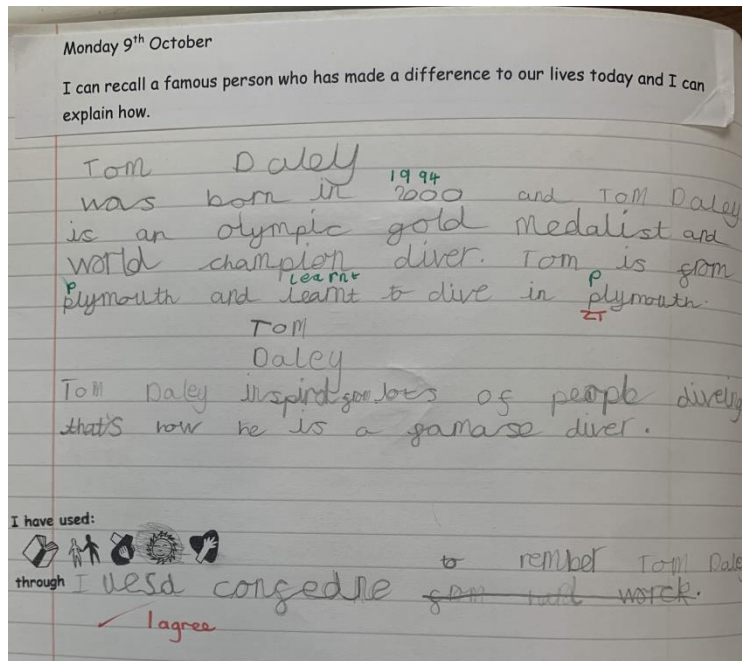 Monday 9th October
I can recall a famous person who has made a difference to our lives today and I can
explain how.
Tom Daley
1994
was born in 2000 and Tom Daley
is an olympic gold medalist and
world champion diver. Tom is from
P learnt P
plymouth and learnt to dive in plymouth.
ZT
Tom
Daley
Tom Daley inspird lots of people
that's how he is a gamase diver.
I have used:
to rember Tom Dale
through I uesd worck.
✓ I agree